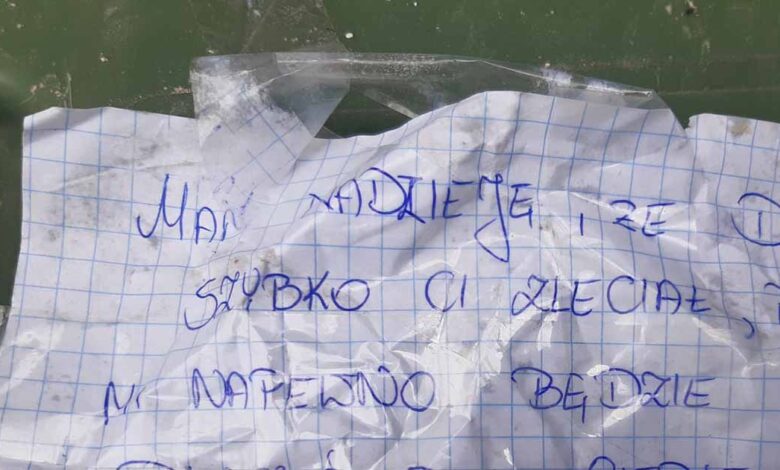 MAM NADZIEJĘ, ŻE
SZYBKO CI ZLECIAŁ,
NAPEWNO BĘDZIE